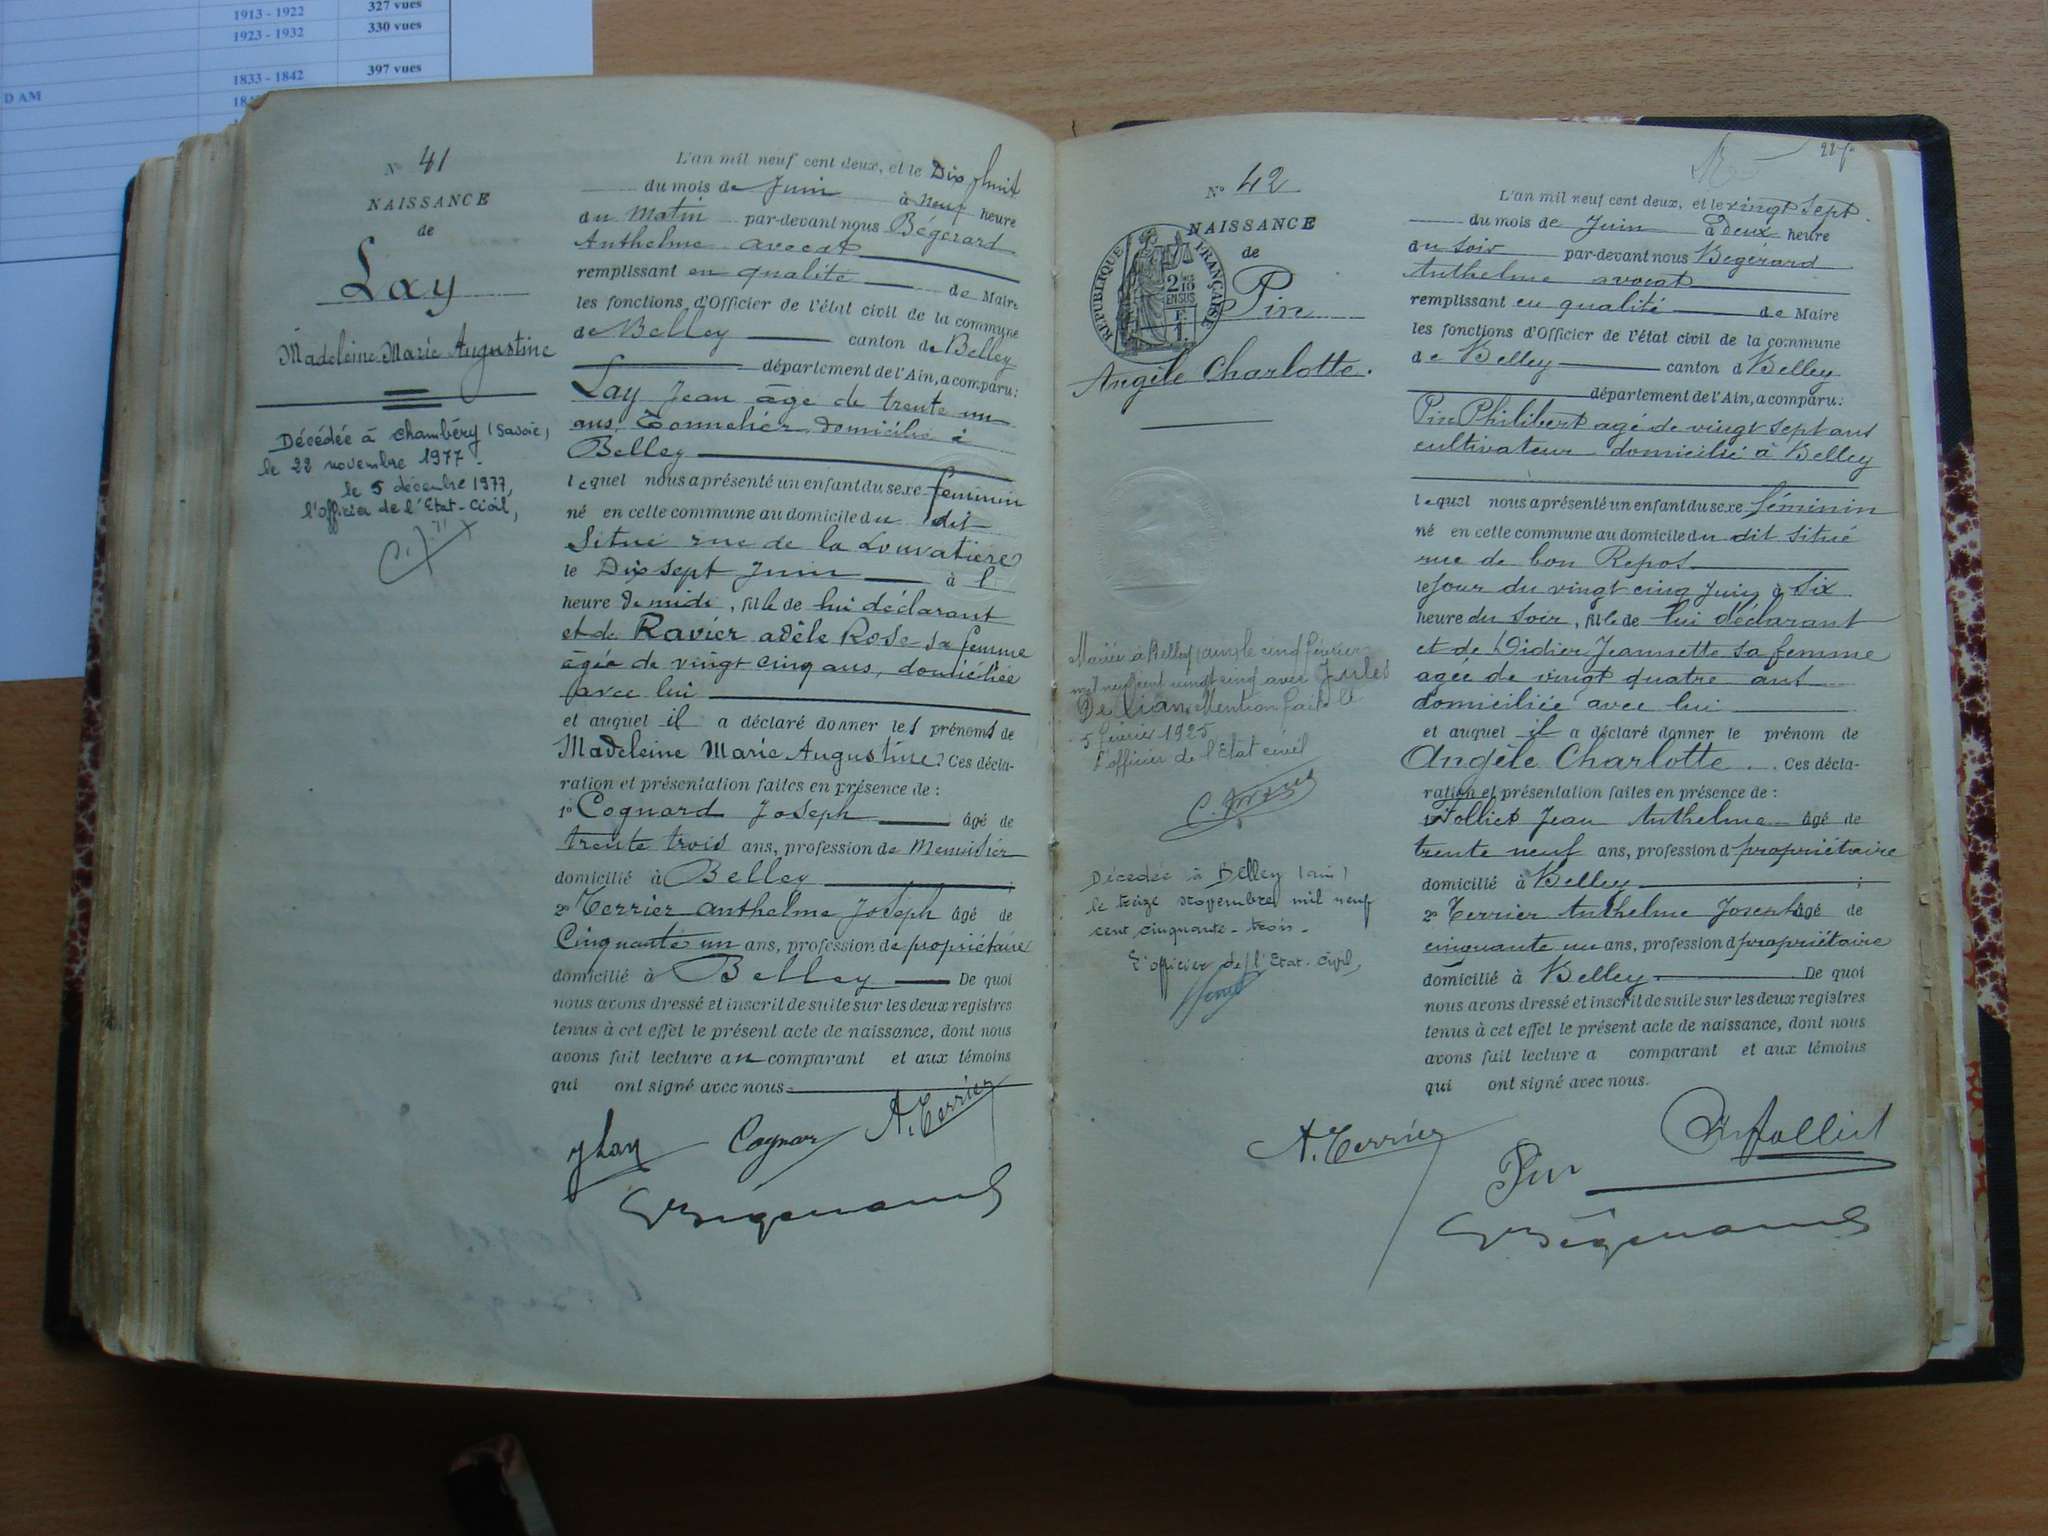 1913 - 1922 327 vues
1923 - 1932 330 vues
1833 - 1842 397 vues
D AM
N° 41
NAISSANCE
de
Lay
Madeleine Marie Augustine
Décédée à Chambéry (Savoie)
le 22 novembre 1977.
le 5 décembre 1977,
l'officier de l'Etat-Civil,
L'an mil neuf cent deux, et le Dix huit
du mois de Juin à Neuf heure
du Matin par-devant nous Bégérard
Anthelme avocat
remplissant en qualité de Maire
les fonctions d'Officier de l'état civil de la commune
de Belley canton de Belley
département de l'Ain, a comparu:
Lay Jean âgé de trente un
ans, Tonnelier domicilié à
Belley
lequel nous a présenté un enfant du sexe feminin
né en cette commune au domicile du dit
Situé rue de la Louvatière
le Dix sept Juin à 1
heure de midi, fille de lui déclarant
et de Ravier adèle Rose sa femme
âgée de vingt cinq ans, domiciliée
avec lui
et auquel il a déclaré donner les prénoms de
Madeleine Marie Augustine. Ces décla-
ration et présentation faites en présence de :
1° Cognard Joseph âgé de
trente trois ans, profession de Menuisier
domicilié à Belley ;
2° Terrier anthelme Joseph âgé de
Cinquante un ans, profession de propriétaire
domicilié à Belley De quoi
nous avons dressé et inscrit de suite sur les deux registres
tenus à cet effet le présent acte de naissance, dont nous
avons fait lecture au comparant et aux témoins
qui ont signé avec nous.
J Lay Cognard A. Terrier
Bégérard
N° 42
NAISSANCE
de
RÉPUBLIQUE FRANÇAISE
2/10 EN SUS
Pin
Angèle Charlotte.
Mariée à Belley (ain) le cinq février
mil neuf cent vingt cinq avec Jules
Mention faite le
5 février 1925
L'officier de l'Etat civil
Décédée à Belley (ain)
le treize novembre mil neuf
cent cinquante-trois.
L'officier de l'Etat-Civil,
L'an mil neuf cent deux, et le vingt sept
du mois de Juin à deux heure
du soir par-devant nous Bégérard
Anthelme avocat
remplissant en qualité de Maire
les fonctions d'Officier de l'état civil de la commune
de Belley canton d Belley
département de l'Ain, a comparu:
Pin Philibert agé de vingt sept ans
cultivateur domicilié à Belley
lequel nous a présenté un enfant du sexe féminin
né en cette commune au domicile du dit situé
rue de bon Repos
le Jour du vingt cinq Juin à six
heure du soir, fille de lui déclarant
et de Didier Jeannette sa femme
agée de vingt quatre ans
domiciliée avec lui
et auquel il a déclaré donner le prénom de
Angèle Charlotte. Ces décla-
ration et présentation faites en présence de :
1° Folliet Jean Anthelme âgé de
trente neuf ans, profession d propriétaire
domicilié à Belley ;
2° Terrier Anthelme Joseph âgé de
cinquante un ans, profession d propriétaire
domicilié à Belley De quoi
nous avons dressé et inscrit de suite sur les deux registres
tenus à cet effet le présent acte de naissance, dont nous
avons fait lecture a comparant et aux témoins
qui ont signé avec nous.
A. Terrier Folliet
Pin
Bégérard